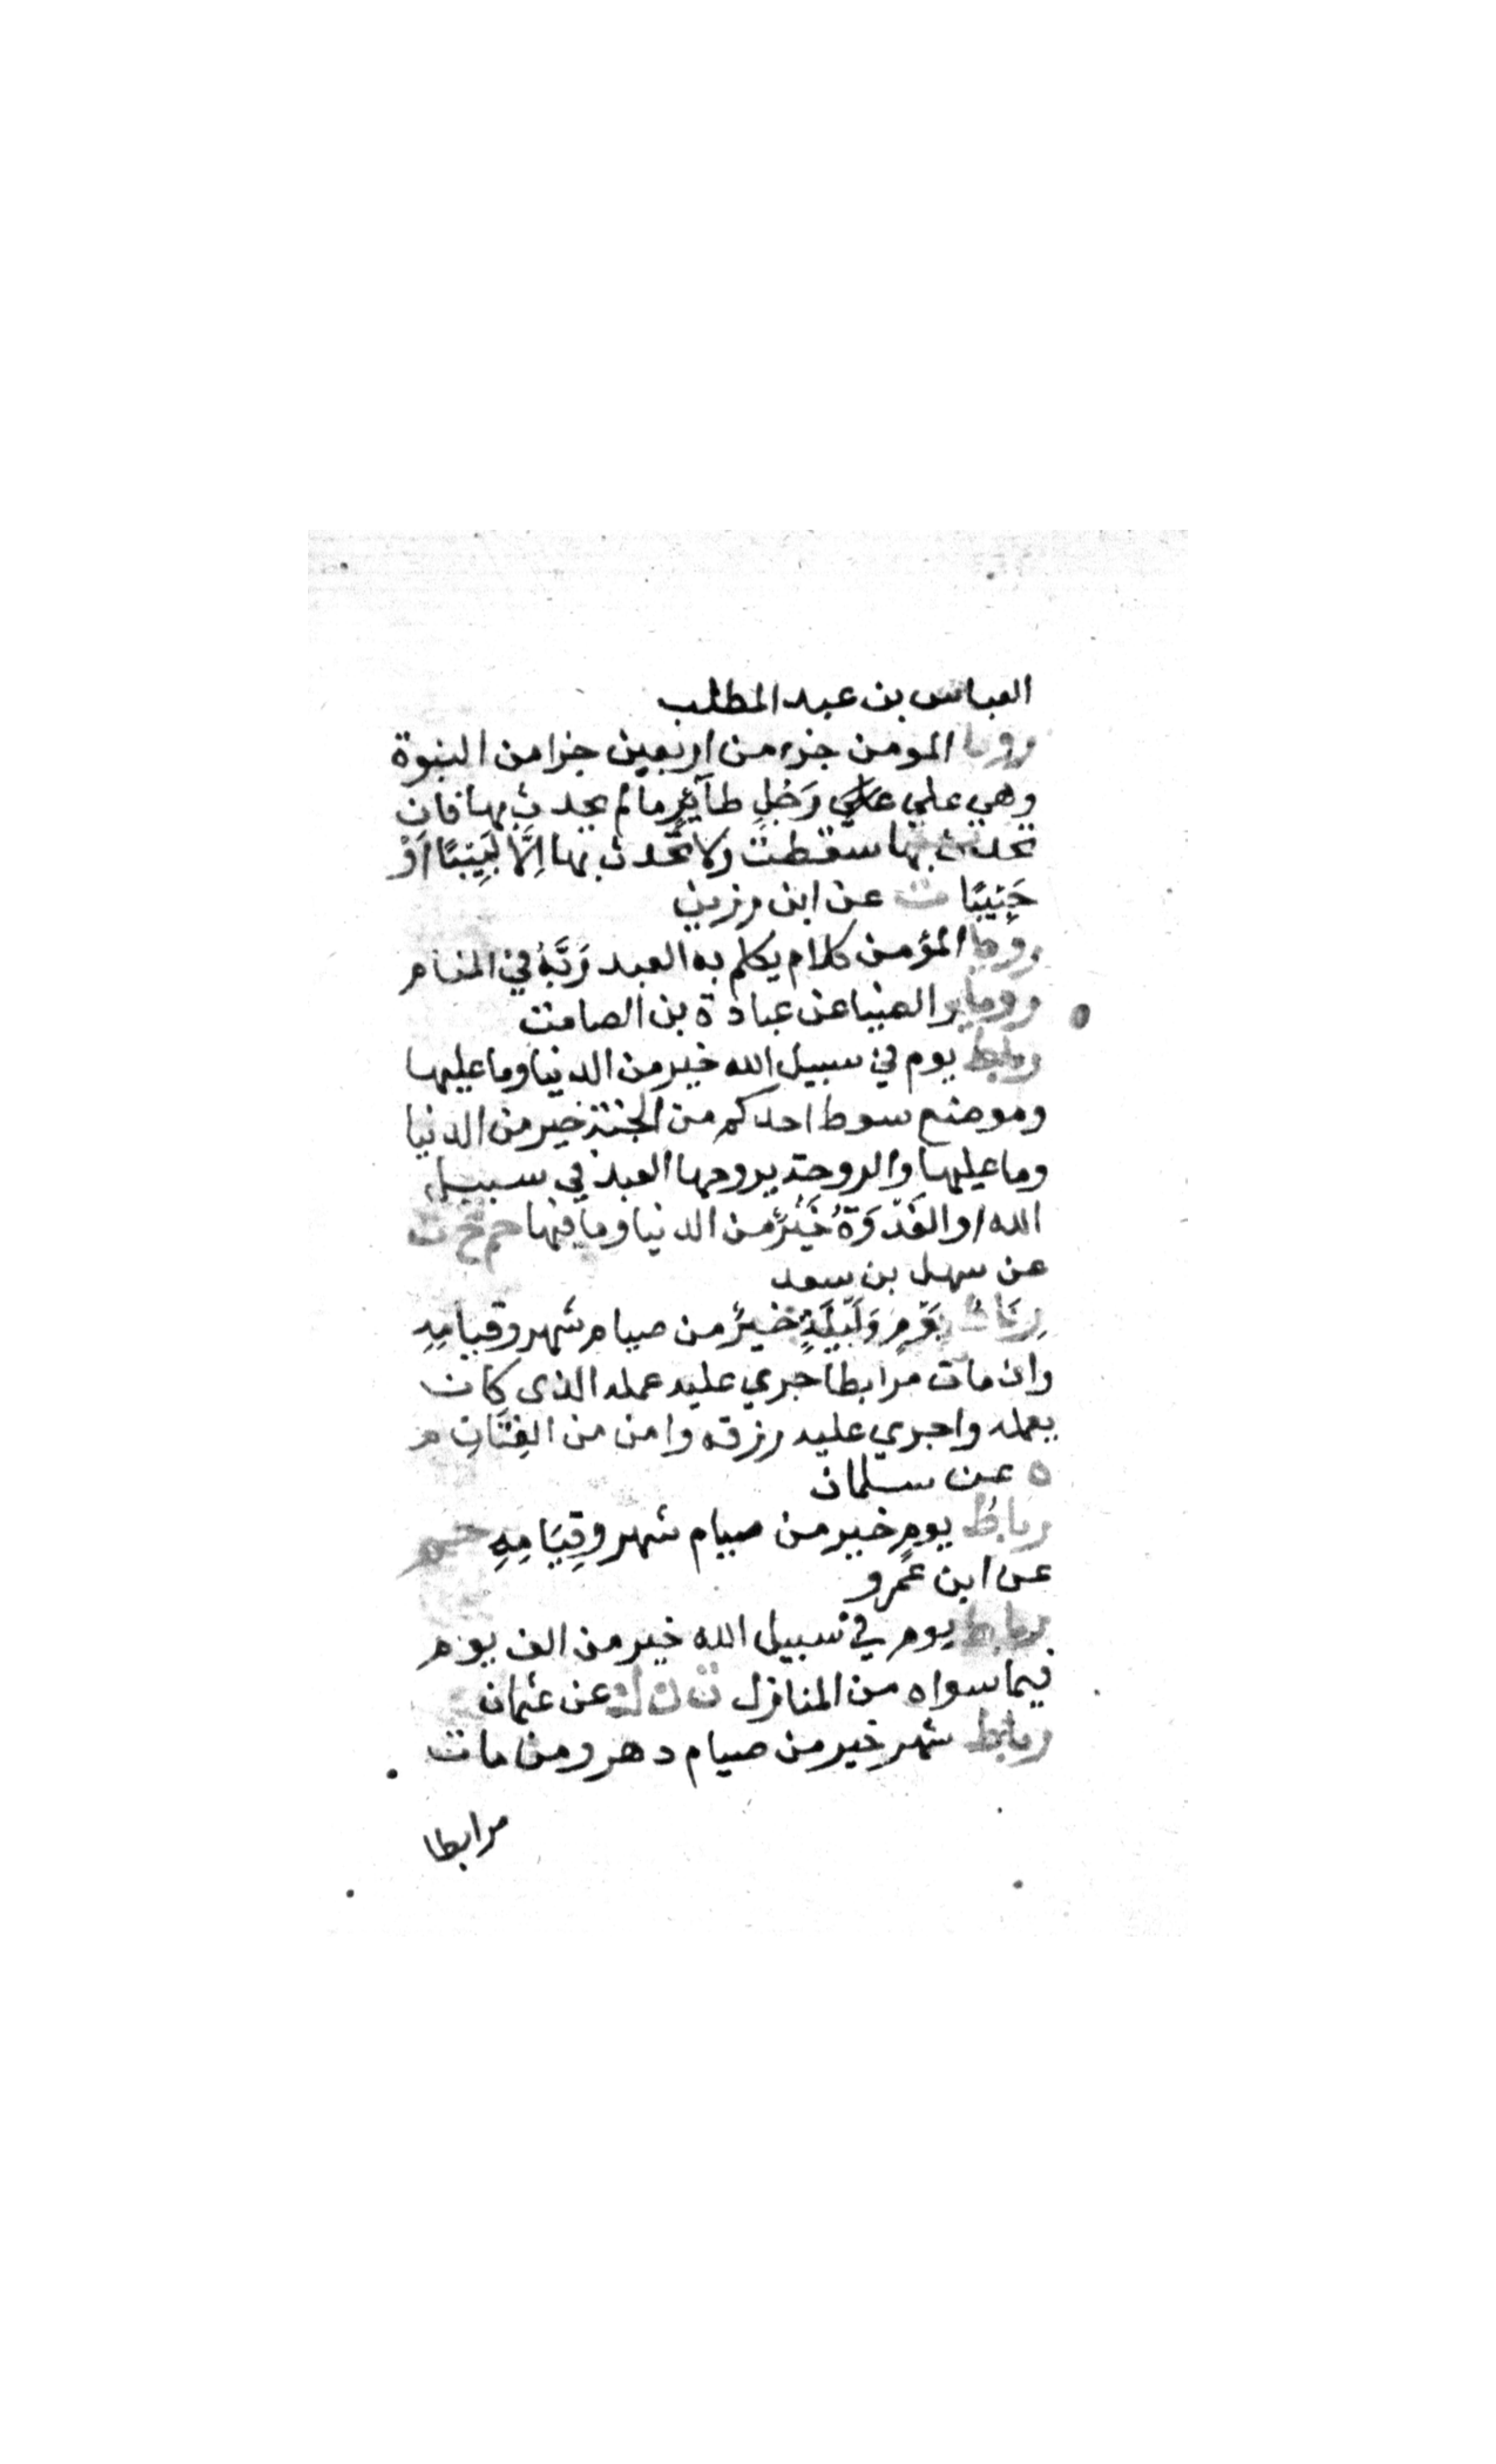 العباس بن عبد المطلب
رويا المومن جزء من اربعين جزا من النبوة
وهي علي رَجُلِ طآئِرٍ مالم يحدث بها فان
تحدث بها سقطت ولا تُحدث بها اِلَّا لَبِيْبًا اَوْ
حَبِيْبًا ت عن ابن رزين
رويا المؤمن كلام يكلم به العبد رَبَّهُ في المنام
والضيا عن عبادة بن الصامت
رباط يوم في سبيل الله خير من الدنيا وما عليها
وموضع سوط احدكم من الجنة خير من الدنيا
وما عليها والروحة يروحها العبد في سبيل
الله او الغَدْوَةُ خَيْرٌ من الدنيا وما فيها حم خ ت
عن سهل بن سعد
رِبَاطُ يَوْمٍ وَلَيْلَةٍ خيرٌ من صيام شهر وقيامِهِ
وان مات مرابطا جري عليه عمله الذى كان
يعمله واجري عليه رزقه وامن من الفتَّان م
ه عن سلمان
رباط يومٍ خير من صيام شهر وقِيَامِهِ حم
عن ابن عَمرو
رباط يوم في سبيل الله خير من الف يوم
فيما سواه من المنازل ت ن ك عن عثمان
رباط شهر خير من صيام دهر ومن مات
مرابطا